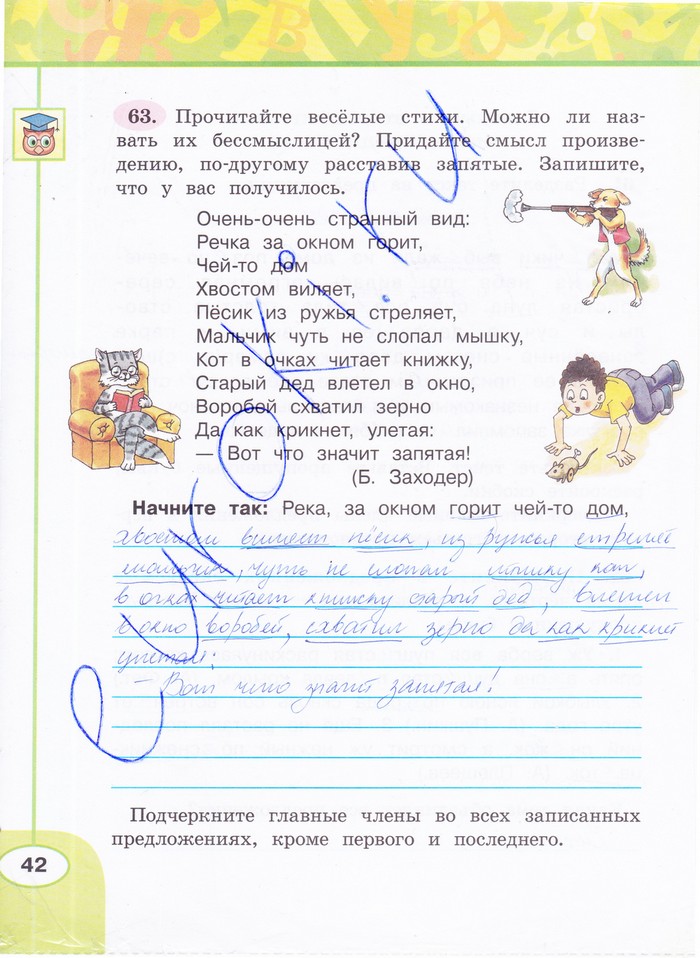 63. Прочитайте весёлые стихи. Можно ли наз-
вать их бессмыслицей? Придайте смысл произве-
дению, по-другому расставив запятые. Запишите,
что у вас получилось.
Очень-очень странный вид:
Речка за окном горит,
Чей-то дом
Хвостом виляет,
Пёсик из ружья стреляет,
Мальчик чуть не слопал мышку,
Кот в очках читает книжку,
Старый дед влетел в окно,
Воробей схватил зерно
Да как крикнет, улетая:
— Вот что значит запятая!
(Б. Заходер)
Начните так: Река, за окном горит чей-то дом,
хвостом виляет пёсик, из ружья стреляет
мальчик, чуть не слопал мышку кот,
в очках читает книжку старый дед, влетел
в окно воробей, схватил зерно да как крикнет
улетая:
— Вот что значит запятая!
Подчеркните главные члены во всех записанных
предложениях, кроме первого и последнего.
42
e-uroki.ru